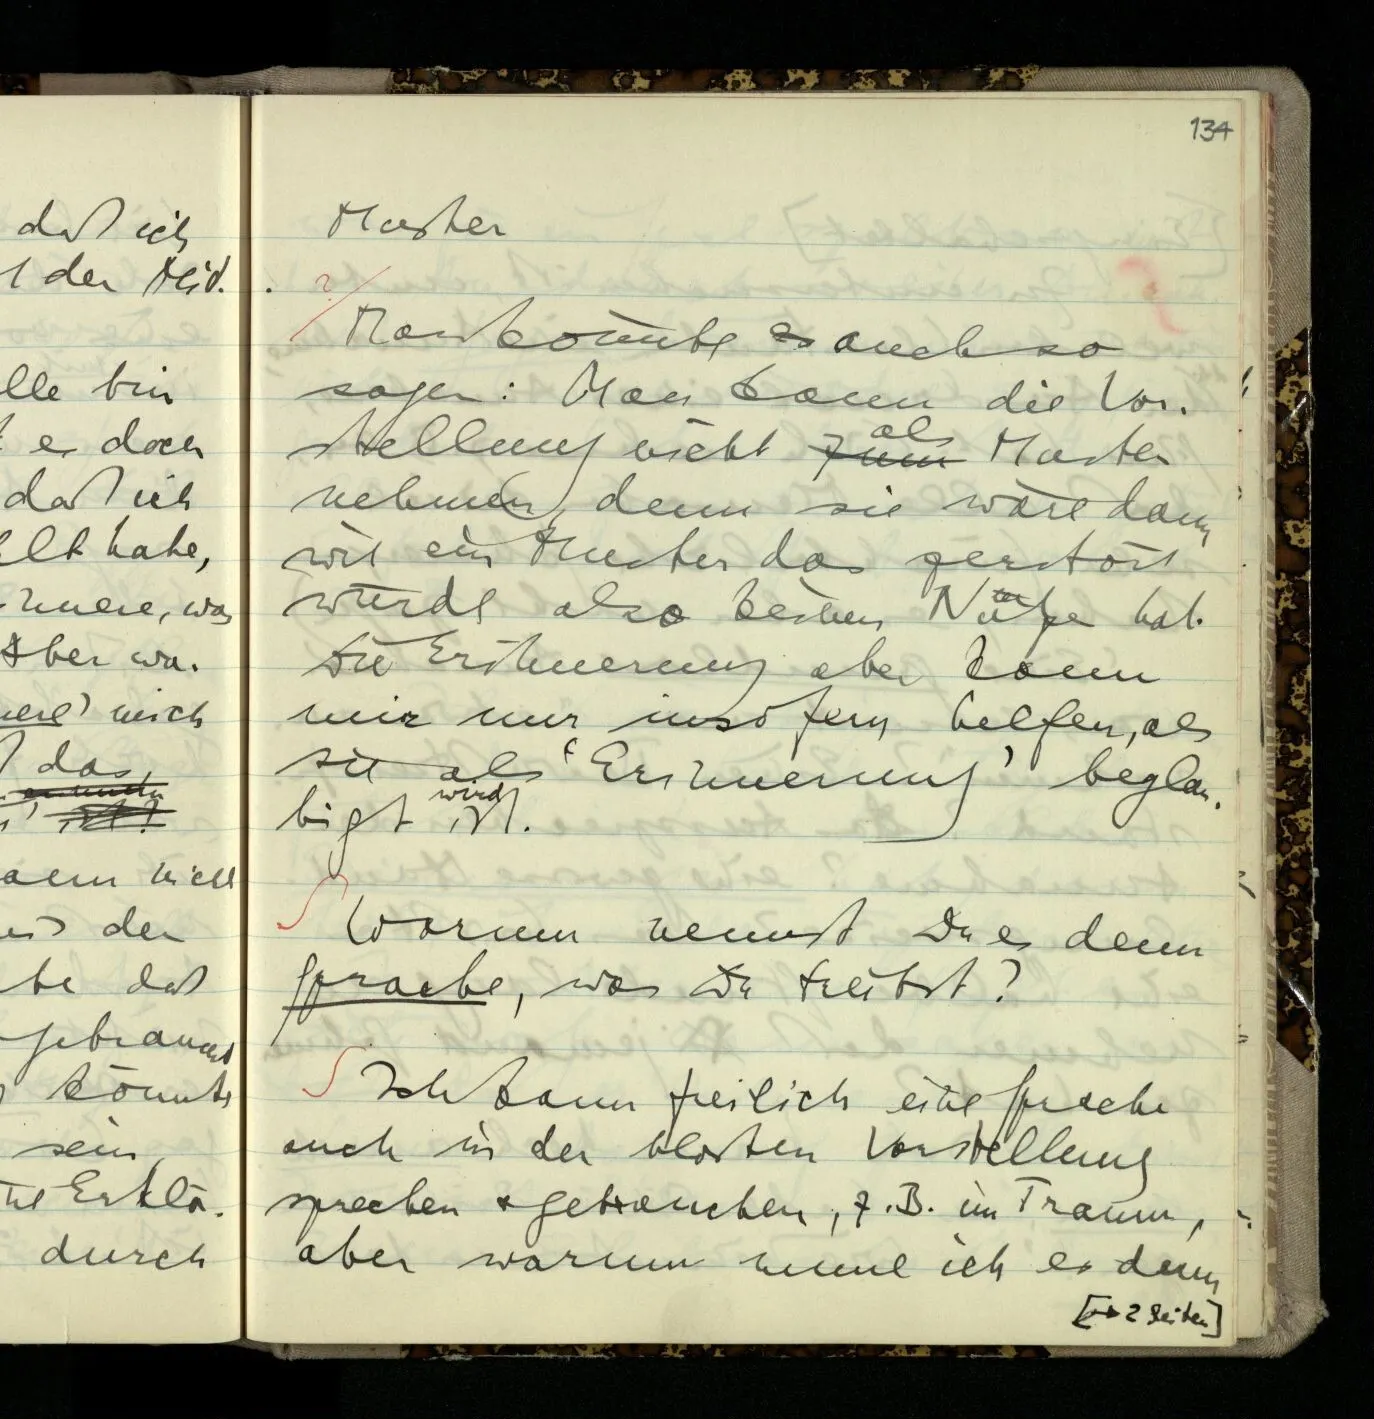 daß ich
der Med.
lle bin
es doch
daß ich
lt habe,
innere, was
Aber wa.
nere' mich
das
ist?
kann nicht
der
be daß
gebraucht
könnte
sein
Erklä.
durch
134
Muster
?/
Man könnte es auch so
sagen: Man kann die Vor-
stellung nicht zum als Muster
nehmen, denn sie wäre dann
wie ein Muster das zerstört
würde also keinen Nutzen hat.
Die Erinnerung aber kann
mir nur insofern helfen, als
sie als 'Erinnerung' beglau-
bigt ist wird.
∫ Warum nennst Du es denn
Sprache, was Du treibst?
∫ Ich kann freilich eine Sprache
auch in der bloßen Vorstellung
sprechen & gebrauchen, z.B. im Traum,
aber warum nenne ich es denn
[→ 2 Seiten]